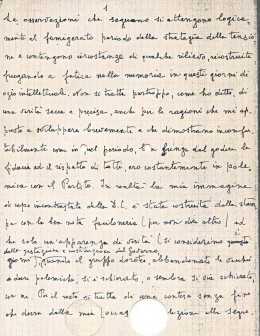 1
Le osservazioni che seguono si attengono logica
mente al famigerato periodo della strategia della tensio
ne e contengono circostanze di qualche rilievo, ricostruite
frugando a fatica nella memoria in questi giorni di
ozio intellettuale. Non si tratta purtroppo, come ho detto, di
una verità secca e precisa, anche per le ragioni che mi ap
presto a sviluppare brevemente e che dimostrano inconfu
tabilmente com in quel periodo, lungi dal godere la
fiducia ed il rispetto di tutti, ero costantemente in pole
mica con il Partito. In realtà la mia immagine
di capo incontrastato della D.C. è stata costruita dalla stam
pa con la ben nota faciloneria (per non dire altro) ed
ha solo un'apparenza di verità (si considerino questi
della gestazione e costituzione del Governo
giorni) quando il gruppo doroteo, abbandonate le vecchie
e dure polemiche, si è schierato, o sembra si sia schierato
con me. Per il resto si tratta di una contesa senza fine
che dura dalla mia elezione alla segre